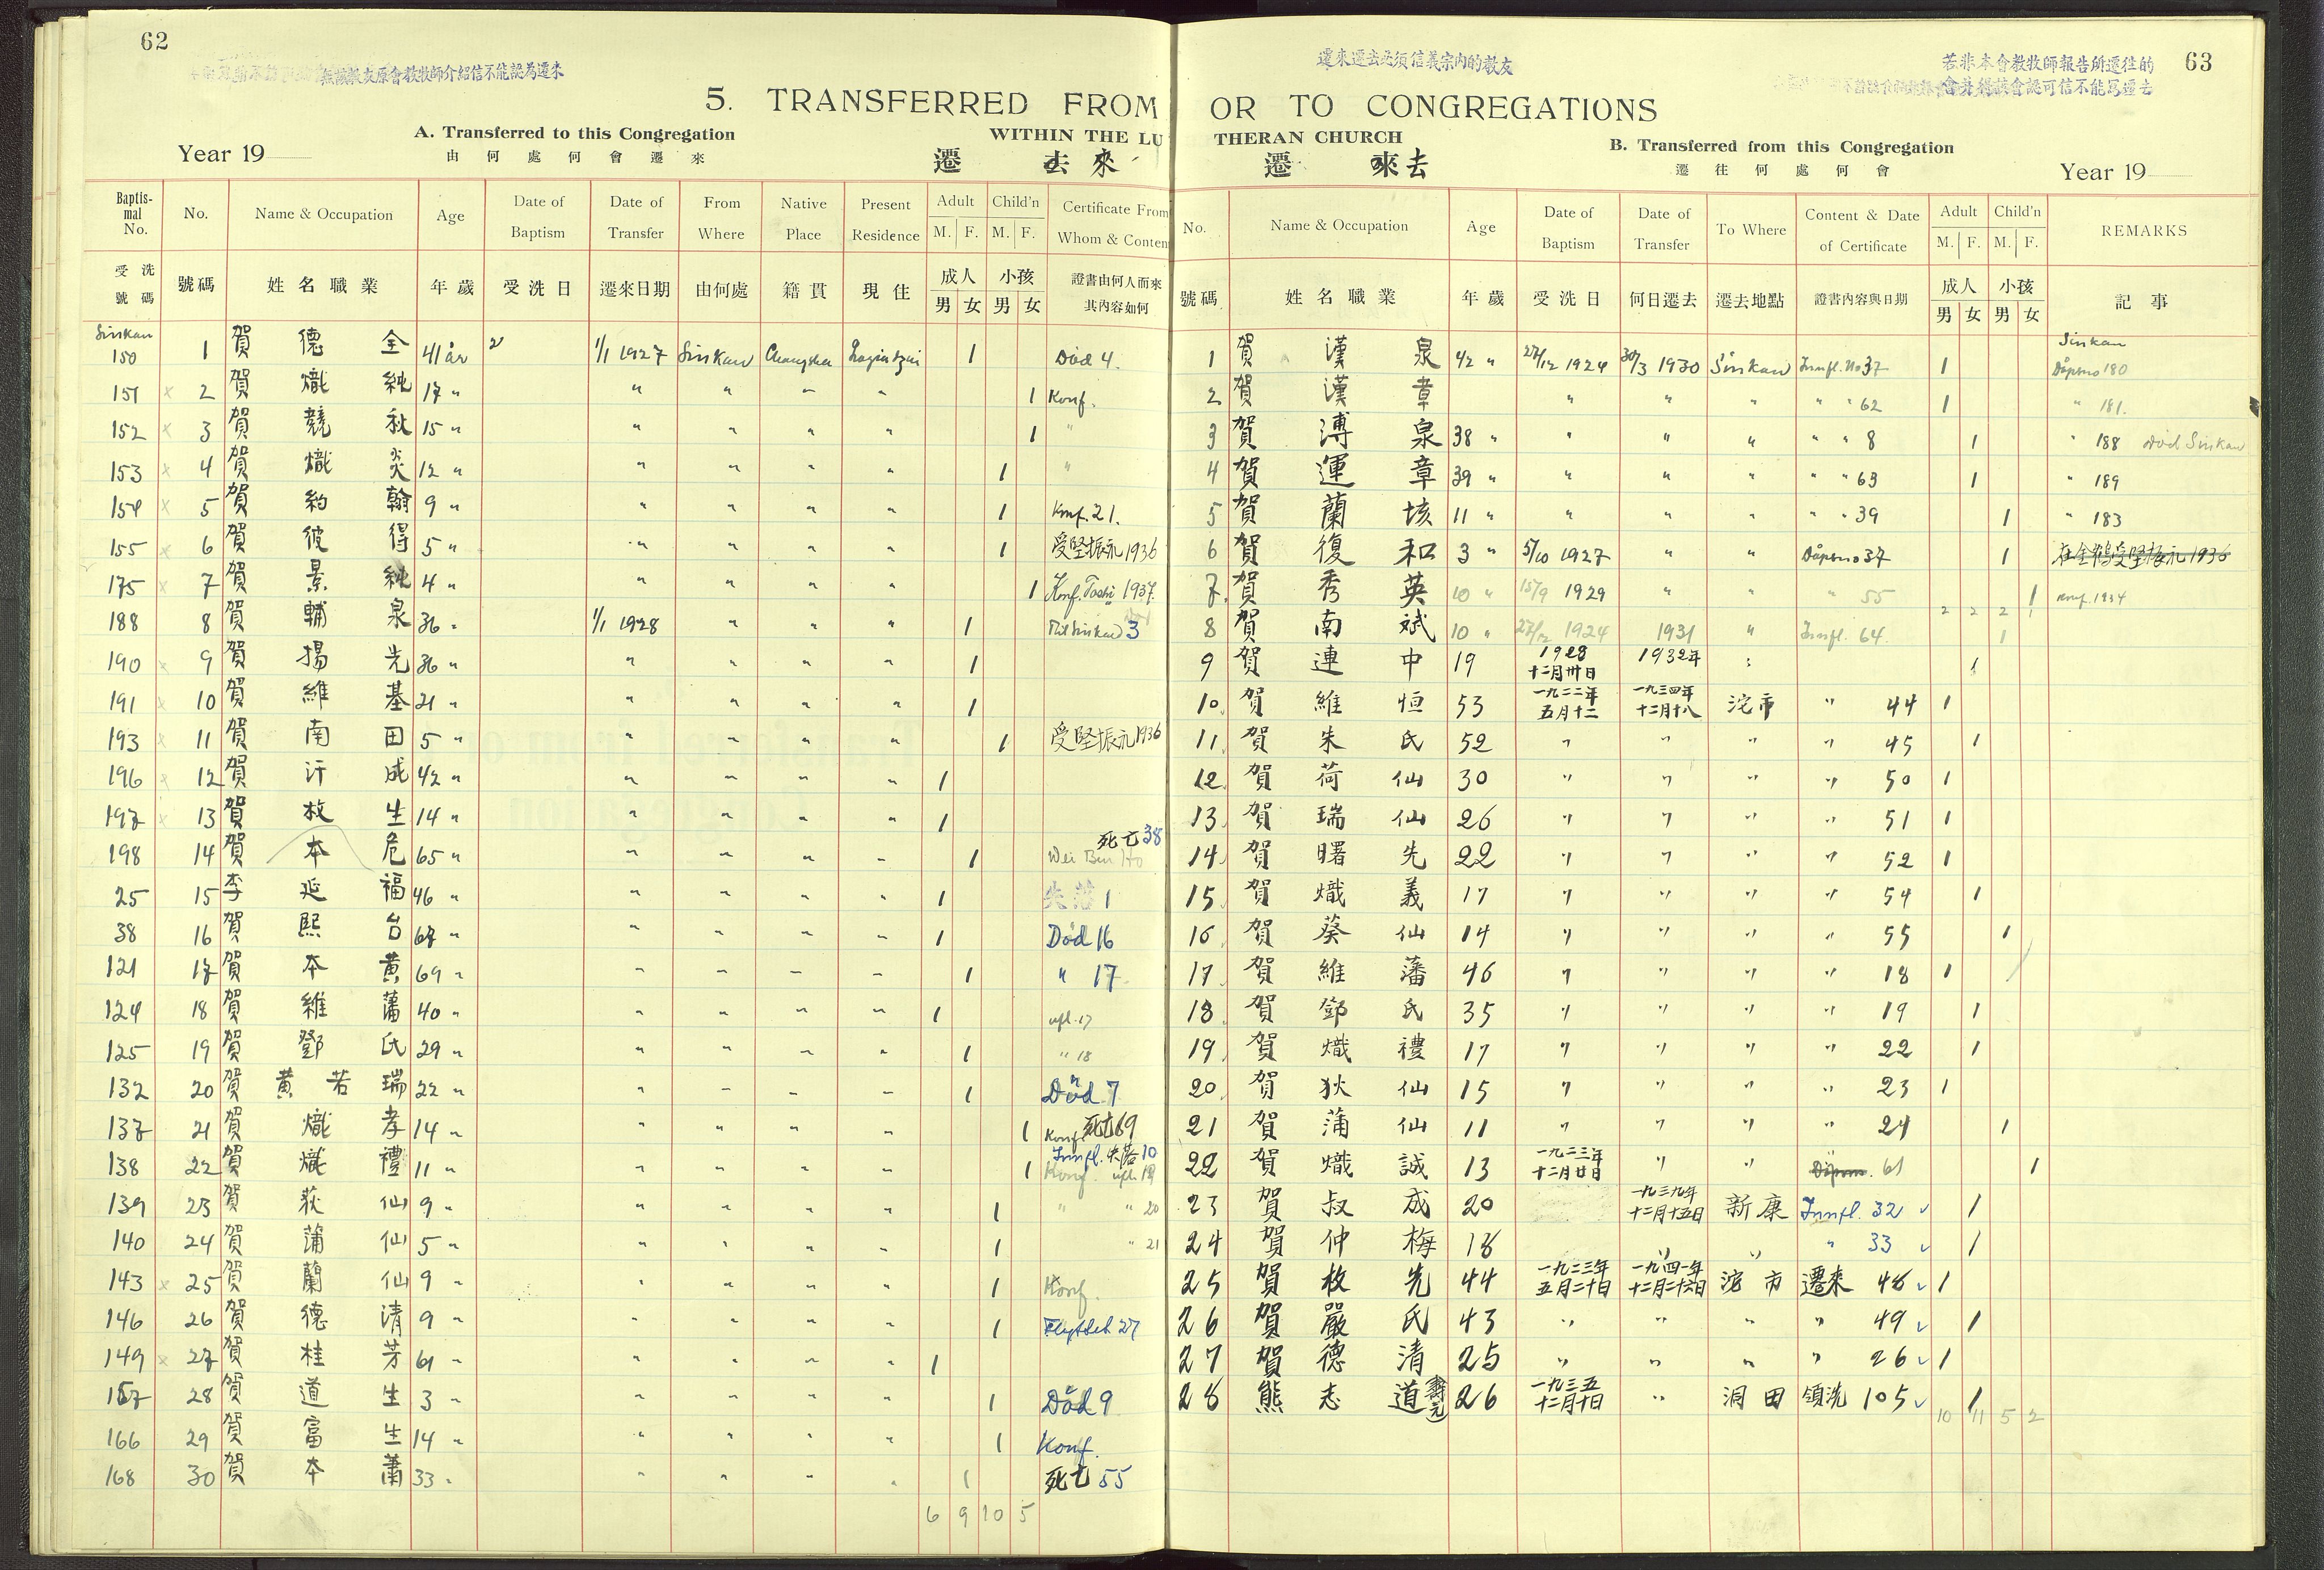 62
無該教友原會教牧師介紹信不能認為遷來
5. TRANSFERRED FROM
A. Transferred to this Congregation
WITHIN THE LU
Year 19
由何處何會遷來
遷 去來
Baptismal No. No. Name & Occupation Age Date of Baptism Date of Transfer From Where Native Place Present Residence Adult M. F. Child'n M. F. Certificate From Whom & Conten
受洗號碼 號碼 姓名職業 年歲 受洗日 遷來日期 由何處 籍貫 現住 成人 男 女 小孩 男 女 證書由何人而來其內容如何
Sinkan
150 1 賀德全 41 år 1/1 1927 Sinkan Changsha 1 Död 4.
151 x 2 賀熾純 17 " " " " " 1 Konf.
152 x 3 賀競秋 15 " " " " " 1 "
153 x 4 賀熾炎 12 " " " " " 1 "
154 x 5 賀約翰 9 " " " " " 1 Konf. 21.
155 x 6 賀彼得 5 " " " " " 1 受堅振礼 1936
175 x 7 賀景純 4 " " " " " 1 Konf. 1937.
188 8 賀輔泉 36 " 1/1 1928 " " " 1 Till Sinkan 3
190 x 9 賀揚光 36 " " " " " 1
191 x 10 賀維基 21 " " " " " 1
193 x 11 賀南田 5 " " " " " 1 受堅振礼 1936
196 x 12 賀汗成 42 " " " " " 1
197 x 13 賀枚生 14 " " " " " 1
198 14 賀本危 65 " " " " " 1 死亡 38 Wei Ben Ho
25 15 李延福 46 " " " " " 1 失落 1
38 16 賀熙台 67 " " " " " 1 Död 16
121 17 賀本黄 69 " " " " " 1 " 17
124 18 賀維藩 40 " " " " " 1 utfl. 17
125 19 賀鄧氏 29 " " " " " 1 " 18
132 20 賀黄若瑞 22 " " " " " 1 Död 7
137 21 賀熾孝 14 " " " " " 1 Konf. 死亡 69
138 22 賀熾禮 11 " " " " " 1 Innfl. 失落 10 Konf. utfl. 19
139 23 賀荻仙 9 " " " " " 1 " " 20
140 24 賀蒲仙 5 " " " " " 1 " 21
143 x 25 賀蘭仙 9 " " " " " 1 Konf.
146 26 賀德清 9 " " " " " 1 Flyttet 27
149 x 27 賀桂芳 61 " " " " " 1
157 28 賀道生 3 " " " " " 1 Död 9
166 29 賀富生 14 " " " " " 1 Konf.
168 30 賀本蕭 33 " " " " " 1 死亡 55
6 9 10 5
63
遷來遷去必須信義宗內的教友
若非本會教牧師報告所遷往的
會并得該會認可信不能爲遷去
OR TO CONGREGATIONS
THERAN CHURCH
B. Transferred from this Congregation
遷 來去
遷往何處何會
Year 19
No. Name & Occupation Age Date of Baptism Date of Transfer To Where Content & Date of Certificate Adult M. F. Child'n M. F. REMARKS
號碼 姓名職業 年歲 受洗日 何日遷去 遷去地點 證書內容與日期 成人 男 女 小孩 男 女 記事
Sinkan
1 賀漢泉 42 " 27/12 1924 30/3 1930 Sinkan Innfl. No 37 1 Dåpsno 180
2 賀漢章 " " " " " 62 1 " 181.
3 賀溥泉 38 " " " " " " 8 1 " 188 Död Sinkan
4 賀運章 39 " " " " " " 63 1 " 189
5 賀蘭垓 11 " " " " " " 39 1 " 183
6 賀復和 3 " 5/10 1927 " " Dåpsno 37 1 在金鶴受堅振礼 1936
7. 賀秀英 10 " 15/9 1929 " " " 55 1 Konf. 1934
2 2 2 1
8 賀南斌 10 " 27/12 1924 1931 " Innfl. 64. 1
9 賀連中 19 1928 十二月卅日 1932年 " 1
10 賀維恒 53 一九二二年五月十二 一九三四年十二月十八 沱市 " 44 1
11 賀朱氏 52 " " " " 45 1
12 賀荷仙 30 " " " " 50 1
13 賀瑞仙 26 " " " " 51 1
14 賀曙先 22 " " " " 52 1
15 賀熾義 17 " " " " 54 1
16 賀葵仙 14 " " " " 55 1
17 賀維藩 46 " " " " 18 1
18 賀鄧氏 35 " " " " 19 1
19 賀熾禮 17 " " " " 22 1
20 賀狄仙 15 " " " " 23 1
21 賀蒲仙 11 " " " " 24 1
22 賀熾誠 13 一九二三年十二月廿日 " " Dåpsno. 61 1
23 賀叔成 20 一九三九年十二月十五日 新康 Innfl. 32 1
24 賀仲梅 18 " " " 33 1
25 賀枚先 44 一九二三年五月二十日 一九四一年十二月二十六日 沱市 遷來 48 1
26 賀嚴氏 43 " " " " 49 1
27 賀德清 25 " " " " 26 1
28 熊志道(壽元) 26 一九三五十二月十日 " 洞田 領洗 105 1
10 11 5 2